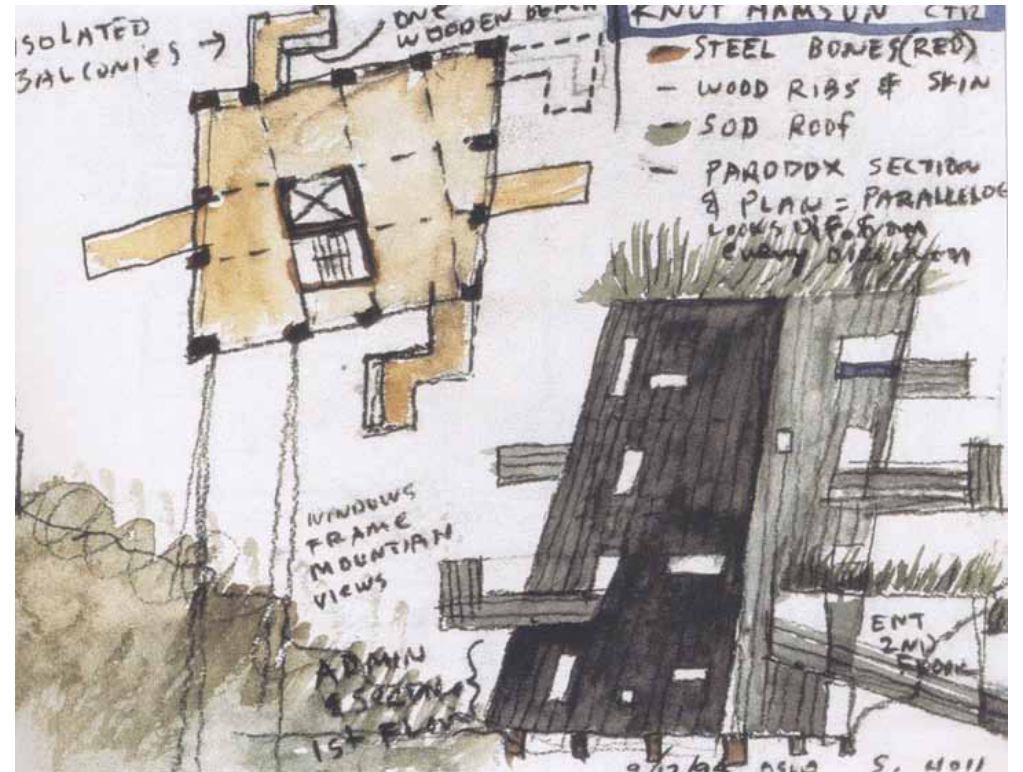 ISOLATED
BALCONIES →
ONE
WOODEN BENCH
KNUT HAMSUN CTR
STEEL BONES (RED)
– WOOD RIBS & SKIN
SOD ROOF
– PARODOX SECTION
& PLAN = PARALLELOG
LOOKS DIF. from
every DIRECTION
WINDOWS
FRAME
MOUNTIAN
VIEWS
ADMIN
1st FLOOR
ENT
2ND
FLOOR
OSLO S. HOLL